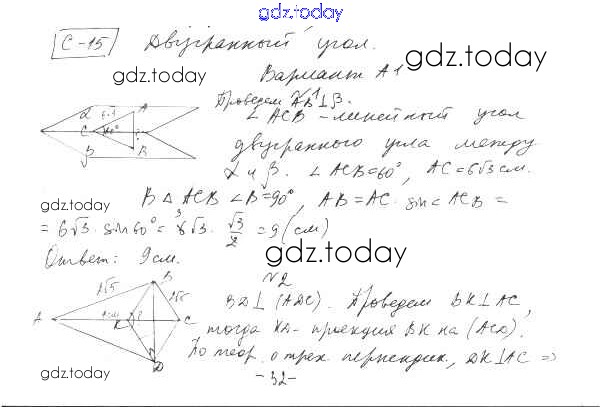 gdz.today
С-15 Двугранный угол.
gdz.today
gdz.today
Вариант А1
№1
Проведем AB⊥β.
α 6√3 A
C 60° B
β
∠ACB - линейный угол
двугранного угла между
α и β. ∠ACB=60°, AC=6√3 см.
gdz.today
В △ ACB ∠B=90°, AB=AC·sin∠ACB =
= 6√3 · sin60° = 6√3 · √3/2 = 9 (см)
Ответ: 9 см.
gdz.today
№2
B
A K C
D
BD⊥(ADC). Проведем BK⊥AC,
тогда KD - проекция BK на (ACD).
По теор. о трех перпендик., DK⊥AC =>
gdz.today
-32-